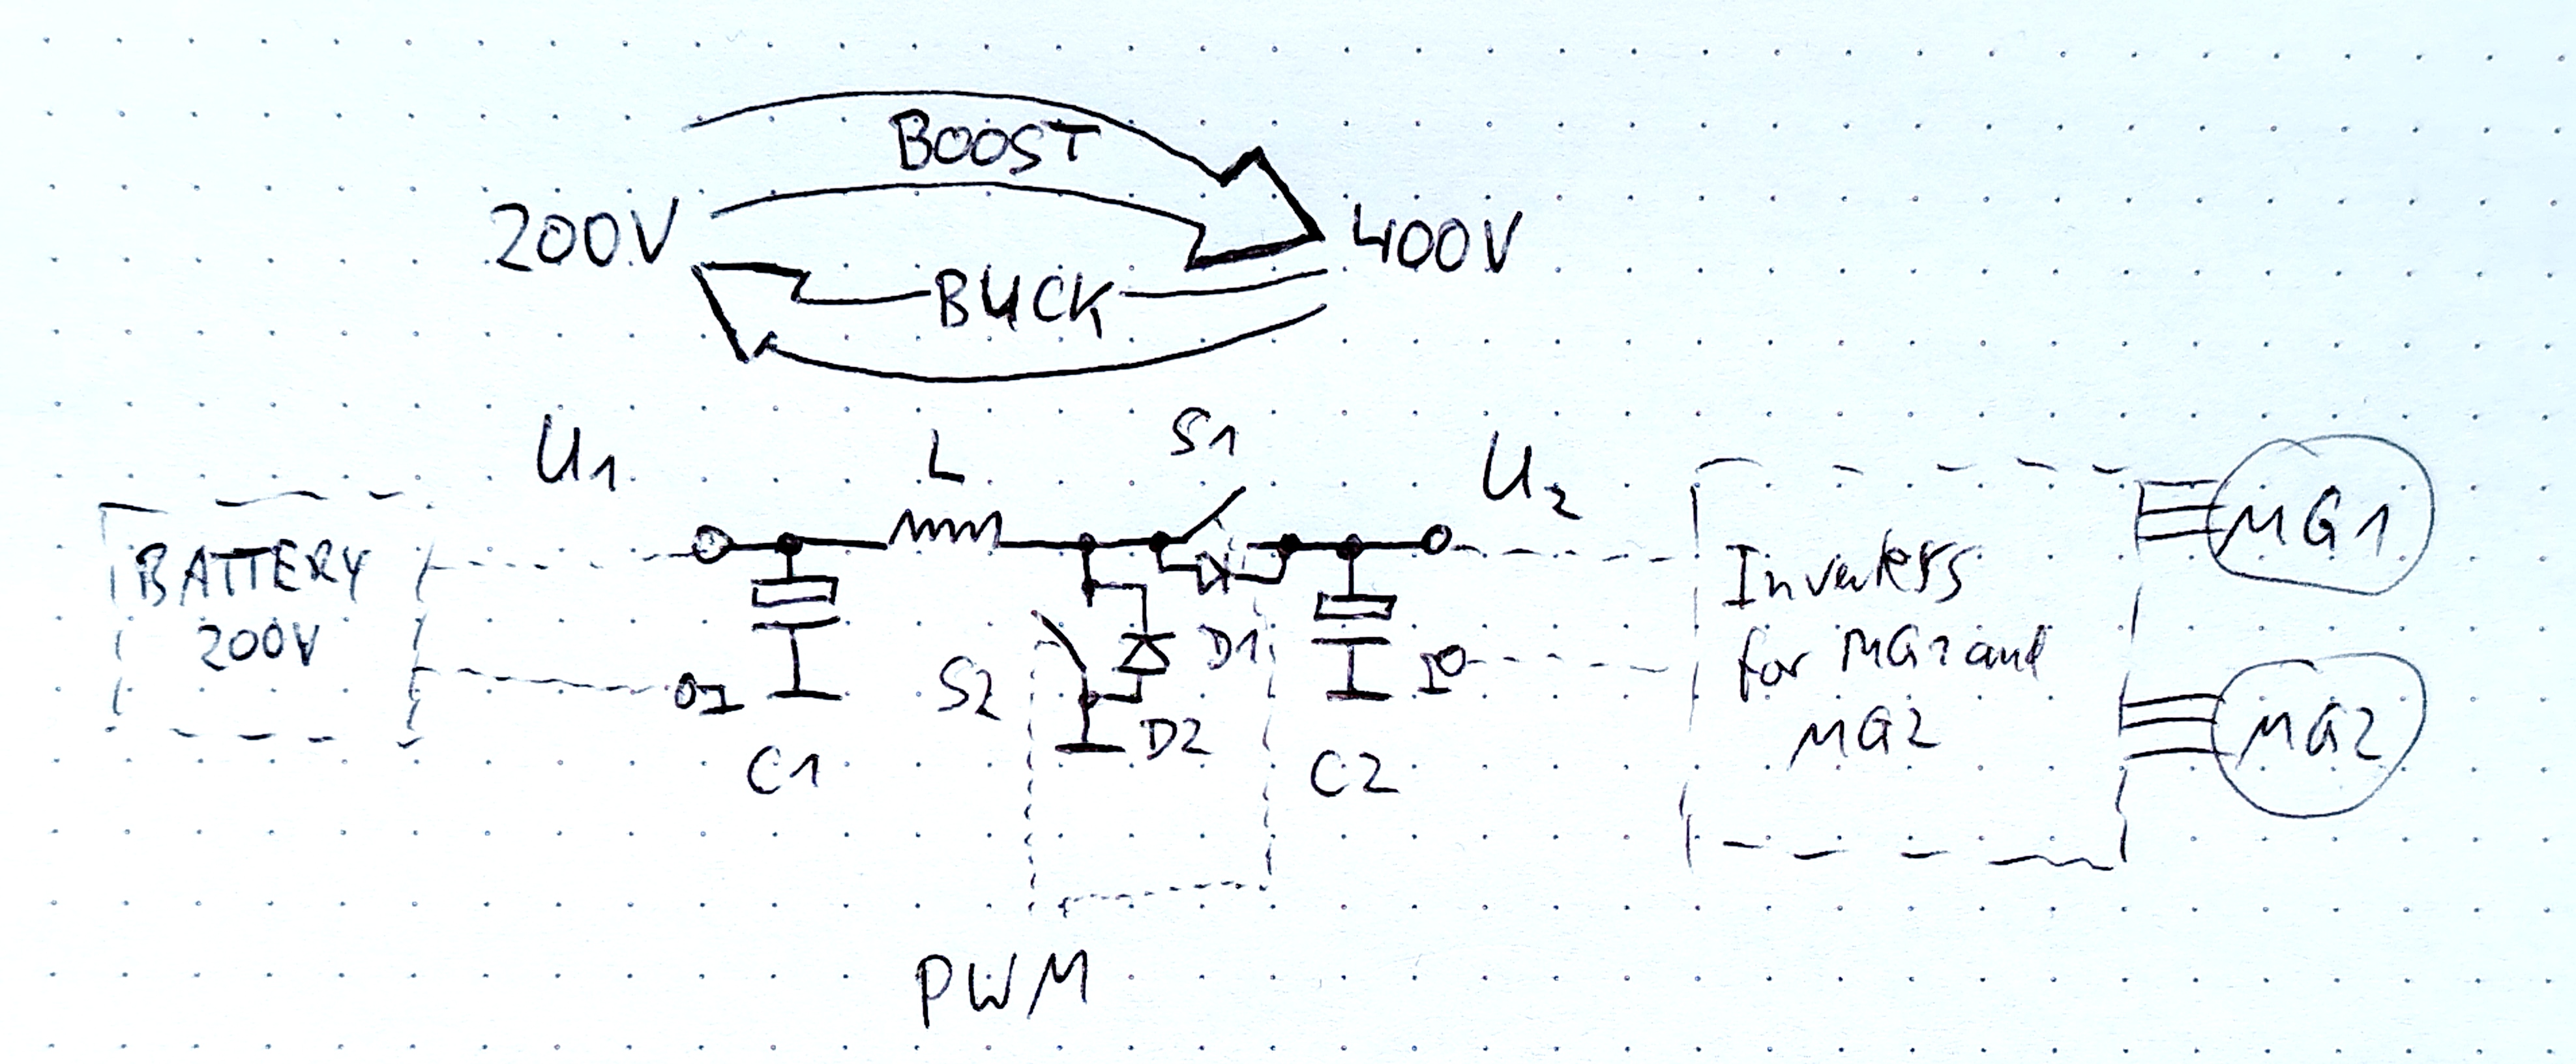 BOOST
200V
400V
BUCK
U1
L
S1
U2
BATTERY
200V
MG1
Inverters
for MG1 and
MG2
S2
D1
D2
MG2
C1
C2
PWM